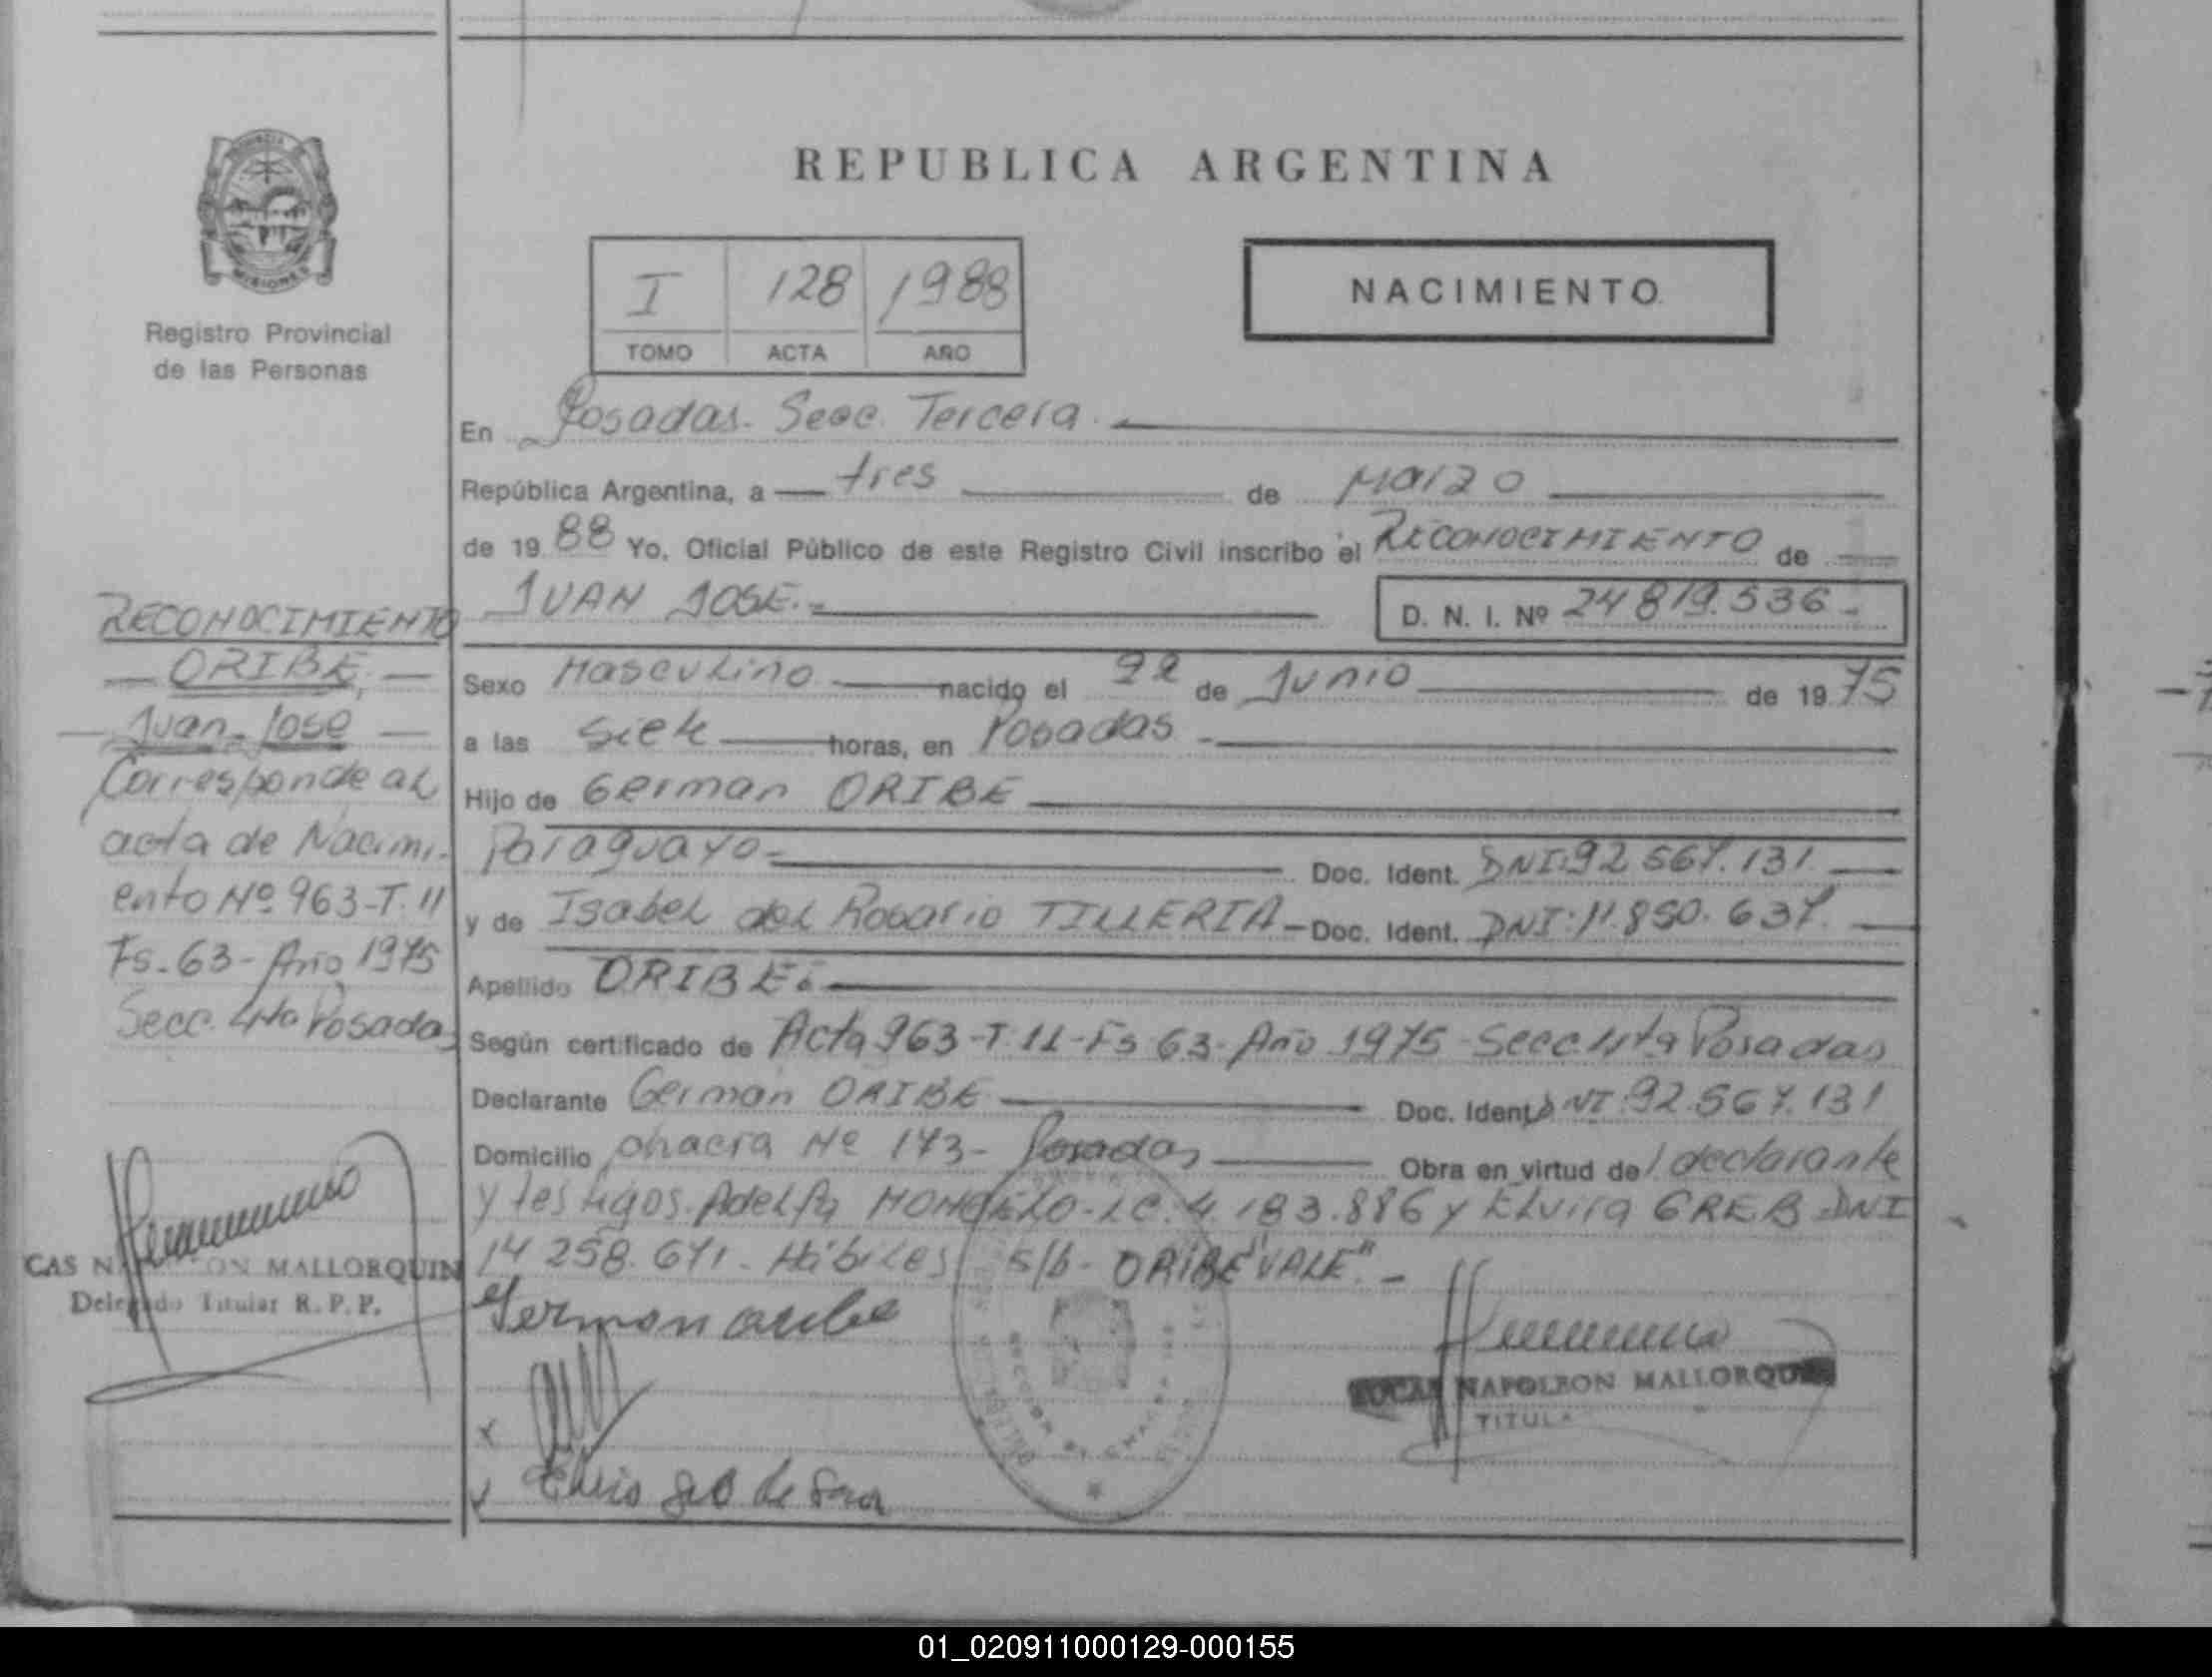 REPUBLICA ARGENTINA
PROVINCIA
MISIONES
Registro Provincial
de las Personas
I 128 1988
TOMO ACTA AÑO
NACIMIENTO
En Posadas - Secc. Tercera
República Argentina, a tres de Marzo
de 1988 Yo, Oficial Público de este Registro Civil inscribo el RECONOCIMIENTO de
JUAN JOSE.- D. N. I. Nº 24 819.536 -
Sexo Masculino nacido el 22 de Junio de 1975
a las Siete horas, en Posadas -
Hijo de German ORIBE
Paraguayo - Doc. Ident. DNI: 92 567.131
y de Isabel del Rosario TILLERIA - Doc. Ident. DNI: 11.850.637.
Apellido ORIBE.
Según certificado de Acta 963 - T. 11 - Fs 63 - Año 1975 - Secc 4ta Posadas
Declarante German ORIBE Doc. Ident. DNI: 92.567.131
Domicilio chacra Nº 173 - Posadas Obra en virtud del declarante
y testigos. Adelfa - LC. 4.183.886 y Elvira GREB - DNI
14 258.671 - Hábiles s/b - ORIBE "VALE" -
German oribe
RECONOCIMIENTO
ORIBE,
Juan - Jose
Corresponde al
acta de Nacimi-
ento Nº 963 - T. 11
Fs - 63 - Año 1975
Secc. 4ta Posadas
CAS N ON MALLORQUIN
Delegado Titular R. P. P.
LUCAS NAPOLEON MALLORQUIN
TITULA
01_020911000129-000155